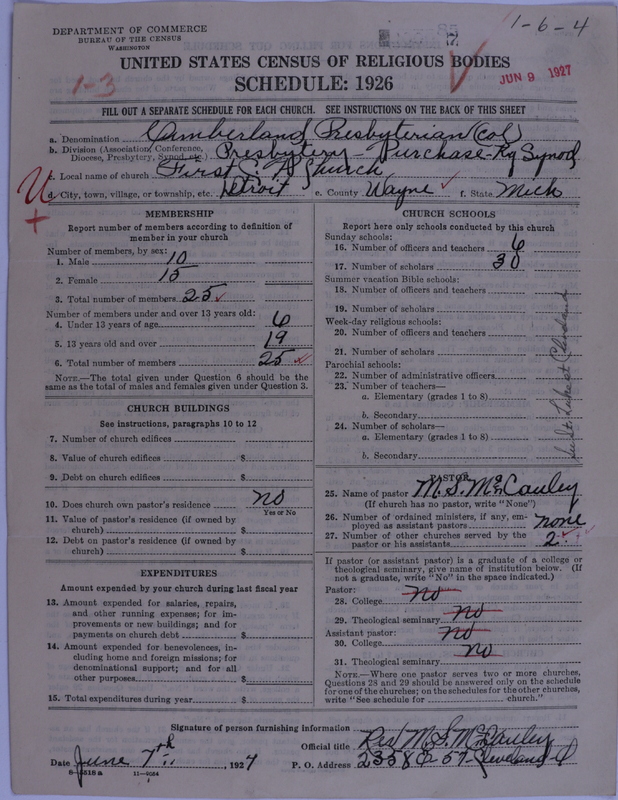 1-6-4
DEPARTMENT OF COMMERCE
BUREAU OF THE CENSUS
WASHINGTON
UNITED STATES CENSUS OF RELIGIOUS BODIES
SCHEDULE: 1926
1-3
JUN 9 1927
FILL OUT A SEPARATE SCHEDULE FOR EACH CHURCH. SEE INSTRUCTIONS ON THE BACK OF THIS SHEET
a. Denomination Cumberland Presbyterian (Col)
b. Division (Association, Conference, Diocese, Presbytery, Synod, etc.) Presbytery - Purchase - Ky Synod
c. Local name of church First C. P. Church
d. City, town, village, or township, etc. Detroit e. County Wayne f. State Mich
MEMBERSHIP
Report number of members according to definition of
member in your church
Number of members, by sex:
1. Male 10
2. Female 15
3. Total number of members 25
Number of members under and over 13 years old:
4. Under 13 years of age 6
5. 13 years old and over 19
6. Total number of members 25
NOTE.—The total given under Question 6 should be the
same as the total of males and females given under Question 3.
CHURCH BUILDINGS
See instructions, paragraphs 10 to 12
7. Number of church edifices
8. Value of church edifices $
9. Debt on church edifices $
10. Does church own pastor's residence no
Yes or No
11. Value of pastor's residence (if owned by
church) $
12. Debt on pastor's residence (if owned by
church) $
EXPENDITURES
Amount expended by your church during last fiscal year
13. Amount expended for salaries, repairs,
and other running expenses; for im-
provements or new buildings; and for
payments on church debt $
14. Amount expended for benevolences, in-
cluding home and foreign missions; for
denominational support; and for all
other purposes $
15. Total expenditures during year $
CHURCH SCHOOLS
Report here only schools conducted by this church
Sunday schools:
16. Number of officers and teachers 6
17. Number of scholars 30
Summer vacation Bible schools:
18. Number of officers and teachers
19. Number of scholars
Week-day religious schools:
20. Number of officers and teachers
21. Number of scholars
Parochial schools:
22. Number of administrative officers
23. Number of teachers—
a. Elementary (grades 1 to 8)
b. Secondary
24. Number of scholars—
a. Elementary (grades 1 to 8)
b. Secondary
PASTOR
25. Name of pastor M. S. McCauley
(If church has no pastor, write "None")
26. Number of ordained ministers, if any, em-
ployed as assistant pastors none
27. Number of other churches served by the
pastor or his assistants 2
If pastor (or assistant pastor) is a graduate of a college or
theological seminary, give name of institution below. (If
not a graduate, write "No" in the space indicated.)
Pastor:
28. College no
29. Theological seminary no
Assistant pastor:
30. College no
31. Theological seminary no
NOTE.—Where one pastor serves two or more churches,
Questions 28 and 29 should be answered only on the schedule
for one of the churches; on the schedules for the other churches,
write "See schedule for church."
Signature of person furnishing information
Official title Rev M. S. McCauley
Date June 7th, 1927 P. O. Address 2358 E-59-Cleveland-O
8-5518 a 11-9064